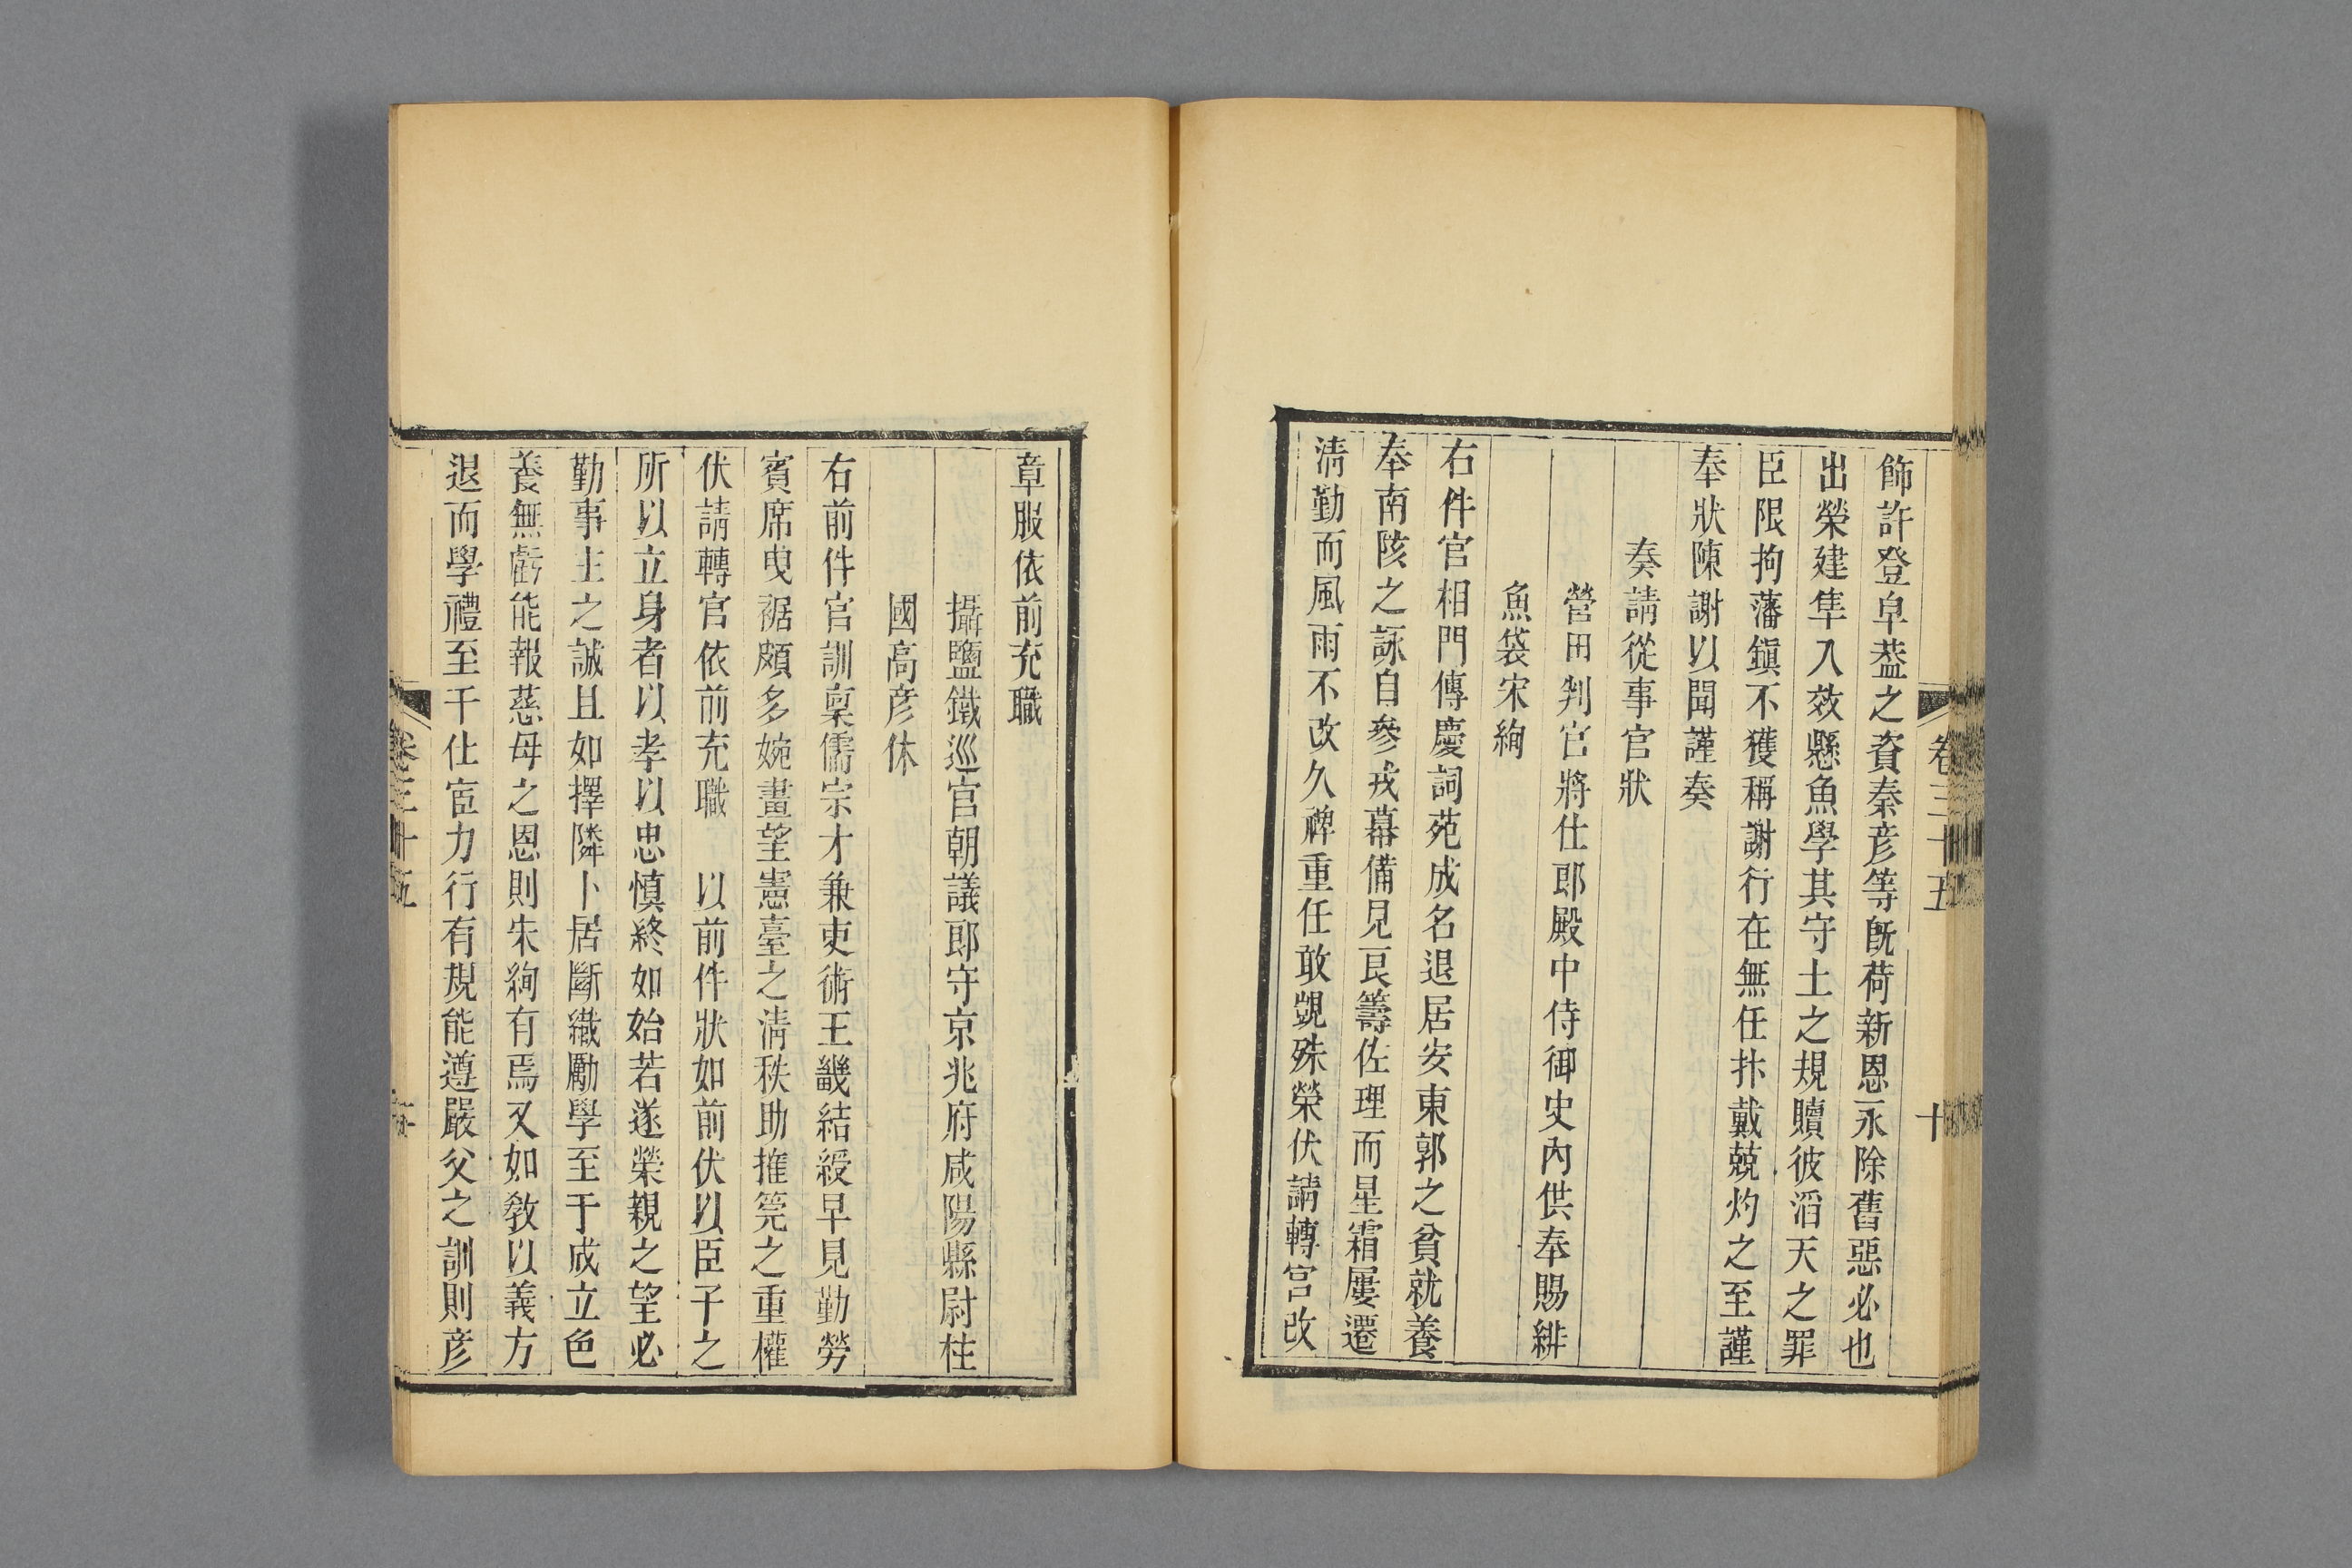 飾許登皁葢之資秦彦等旣荷新恩永除舊惡必也
出榮建隼入效懸魚學其守土之規贖彼滔天之罪
臣限拘藩鎭不獲稱謝行在無任抃戴兢灼之至謹
奉狀陳謝以聞謹奏
奏請從事官狀
營田判官將仕郎殿中侍御史內供奉賜緋
魚袋宋絢
右件官相門傳慶詞苑成名退居安東郭之貧就養
奉南陔之詠自參戎幕備見良籌佐理而星霜屢遷
淸勤而風雨不改久裨重任敢覬殊榮伏請轉官改
章服依前充職
攝鹽鐵巡官朝議郎守京兆府咸陽縣尉柱
國高彦休
右前件官訓稟儒宗才兼吏術王畿結綬早見勤勞
賓席曳裾頗多婉畫望憲臺之淸秩助搉筦之重權
伏請轉官依前充職　以前件狀如前伏以臣子之
所以立身者以孝以忠愼終如始若遂榮親之望必
勤事主之誠且如擇隣卜居斷織勵學至于成立色
養無虧能報慈母之恩則朱絢有焉又如敎以義方
退而學禮至于仕宦力行有規能遵嚴父之訓則彦
卷三十五
十
卷三十五